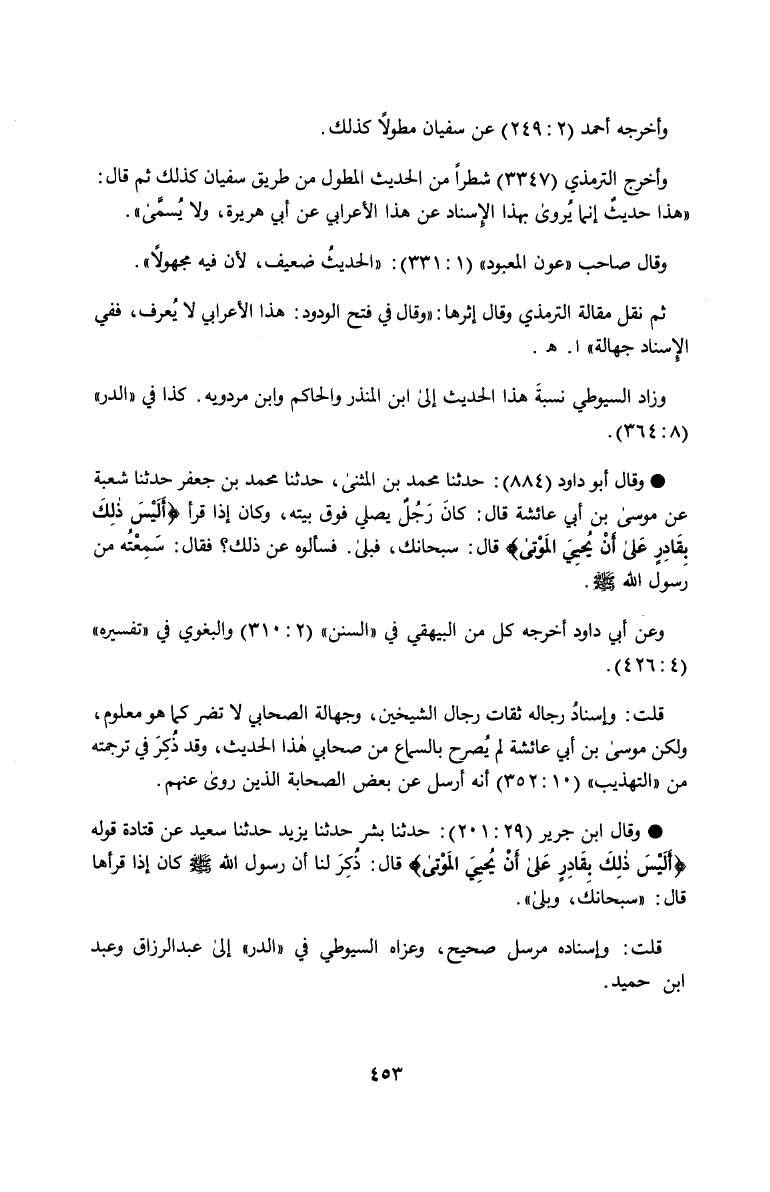 وأخرجه أحمد (٢: ٢٤٩) عن سفيان مطولاً كذلك.
وأخرج الترمذي (٣٣٤٧) شطراً من الحديث المطول من طريق سفيان كذلك ثم قال:
«هذا حديثٌ إنما يُروىٰ بهذا الإِسناد عن هذا الأعرابي عن أبي هريرة، ولا يُسمَّىٰ».
وقال صاحب «عون المعبود» (١: ٣٣١): «الحديثُ ضعيف، لأن فيه مجهولاً».
ثم نقل مقالة الترمذي وقال إثرها: «وقال في فتح الودود: هذا الأعرابي لا يُعرف، ففي
الإِسناد جهالة» ا. هـ .
وزاد السيوطي نسبةَ هذا الحديث إلىٰ ابن المنذر والحاكم وابن مردويه. كذا في «الدر»
(٨: ٣٦٤).
● وقال أبو داود (٨٨٤): حدثنا محمد بن المثنىٰ، حدثنا محمد بن جعفر حدثنا شعبة
عن موسىٰ بن أبي عائشة قال: كانَ رَجُلٌ يصلي فوق بيته، وكان إذا قرأ ﴿أَلَيْسَ ذٰلِكَ
بِقَادِرٍ عَلىٰ أَنْ يُحْيِيَ المَوْتىٰ﴾ قال: سبحانك، فبلىٰ. فسألوه عن ذلك؟ فقال: سَمِعْتُه من
رسول الله ﷺ.
وعن أبي داود أخرجه كل من البيهقي في «السنن» (٢: ٣١٠) والبغوي في «تفسيره»
(٤: ٤٢٦).
قلت: وإسنادُ رجاله ثقات رجال الشيخين، وجهالة الصحابي لا تضر كما هو معلوم،
ولكن موسىٰ بن أبي عائشة لم يُصرح بالسماع من صحابي هٰذا الحديث، وقد ذُكِرَ في ترجمته
من «التهذيب» (١٠: ٣٥٢) أنه أرسل عن بعض الصحابة الذين روىٰ عنهم.
● وقال ابن جرير (٢٩: ٢٠١): حدثنا بشر حدثنا يزيد حدثنا سعيد عن قتادة قوله
﴿أَلَيْسَ ذٰلِكَ بِقَادِرٍ عَلىٰ أَنْ يُحْيِيَ المَوْتىٰ﴾ قال: ذُكِرَ لنا أن رسول الله ﷺ كان إذا قرأها
قال: «سبحانك، وبلىٰ».
قلت: وإسناده مرسل صحيح، وعزاه السيوطي في «الدر» إلىٰ عبدالرزاق وعبد
ابن حميد.
٤٥٣